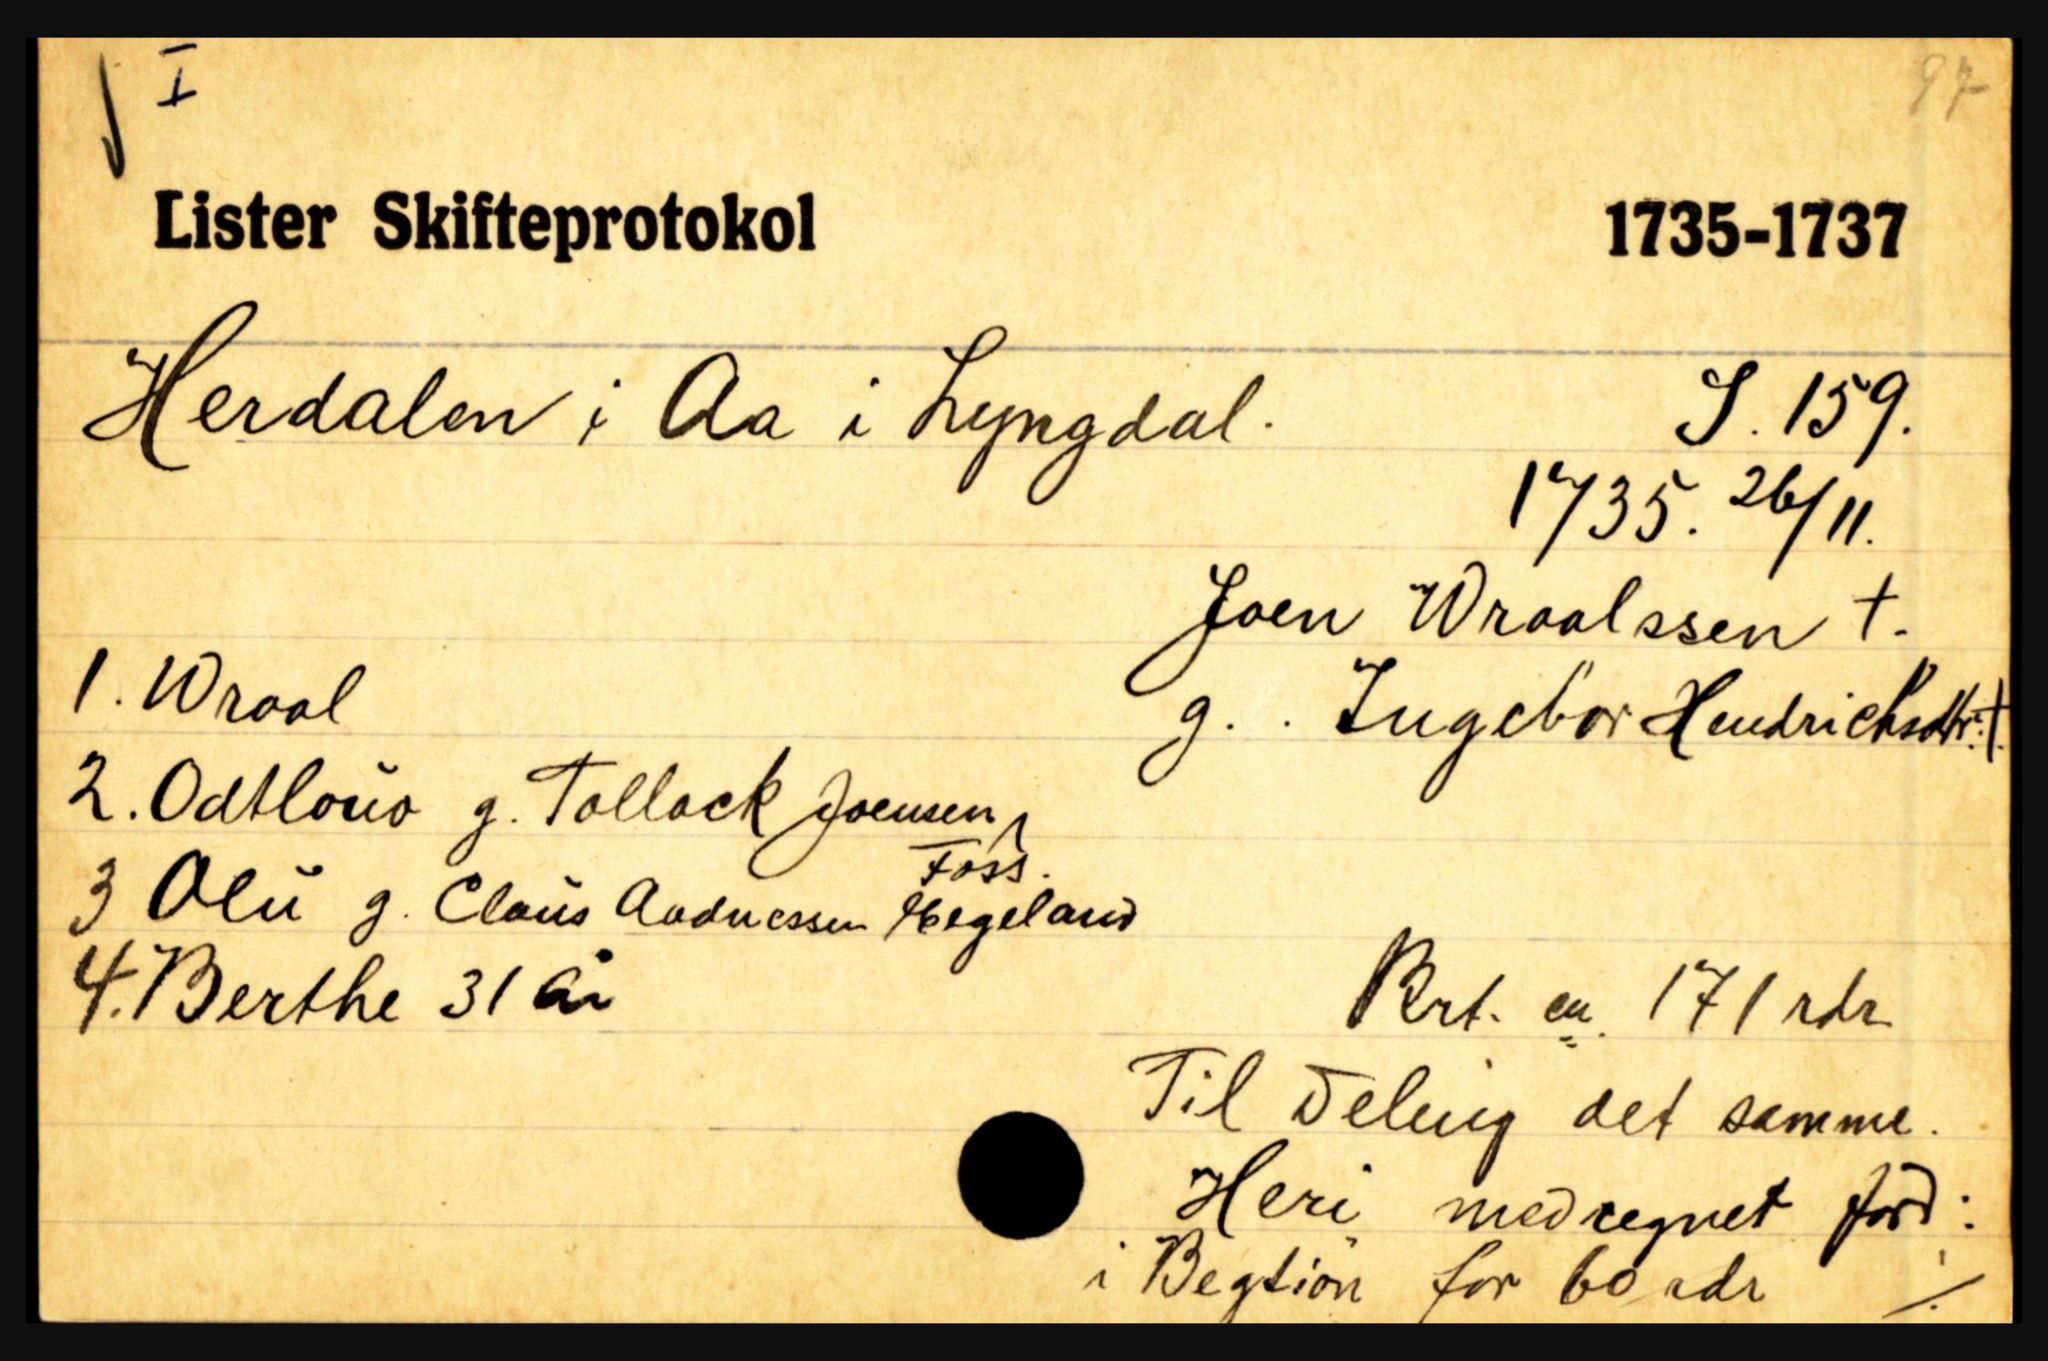 I
97
Lister Skifteprotokol 1735-1737
Herdalen i Aa i Lyngdal. S. 159.
1735. 26/11.
Joen Wraalssen †.
1. Wraal g. . Ingebor Hendrichsdtr. †.
2. Odtloŭo g. Tollack Joensen
Foss.
3 Olŭ g. Claŭs Aadnessen Hegeland
4. Berthe 31 år
Brt. ca. 171 rdr
Til Deling det samme.
Heri medregnet jord:
i Begtiön for 60 rdr ./.